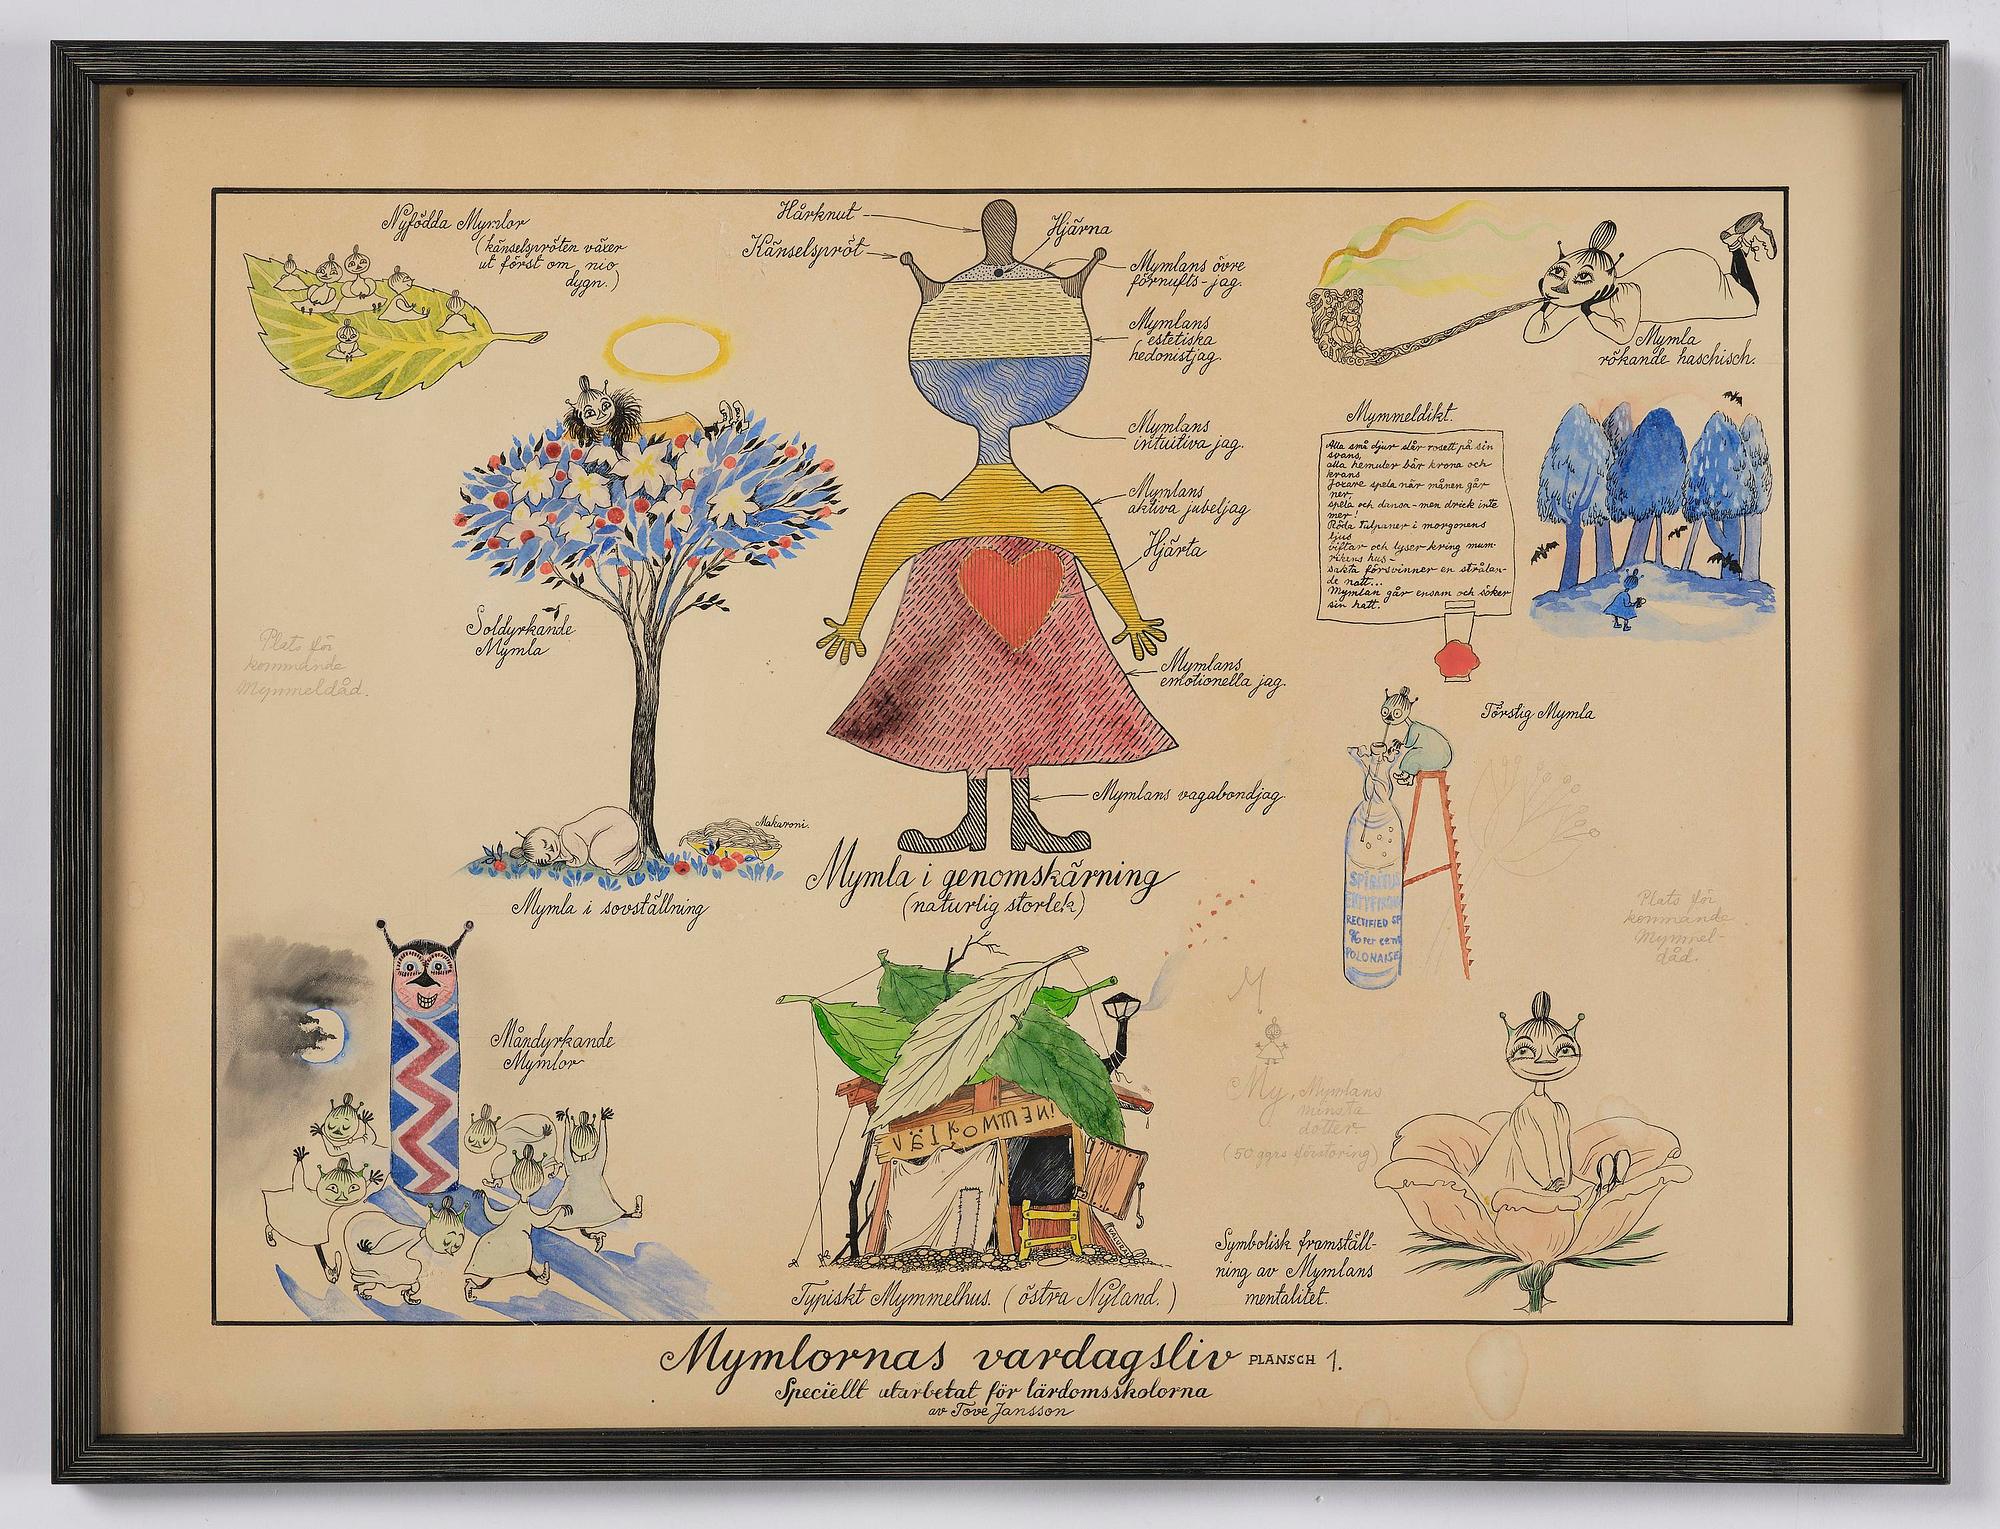 Nyfödda Mymlor
(känselspröten växer
ut först om nio
dygn.)
Hårknut
Känselspröt
Hjärna
Mymlans övre
förnufts-jag.
Mymlans
estetiska
hedonistjag.
Mymlans
intuitiva jag.
Mymlans
aktiva jubeljag
Hjärta
Mymlans
emotionella jag.
Mymlans vagabondjag.
Mymla i genomskärning
(naturlig storlek)
Mymla
rökande haschisch.
Mymmeldikt.
Alla små djur slår rosett på sin
svans,
alla hemuler bär krona och
krans
Joxare spela när månen går
ner,
spela och dansa - men drick inte
mer!
Röda Tulpaner i morgonens
ljus
viftar och lyser kring mum-
rikens hus -
sakta försvinner en strålan-
de natt...
Mymlan går ensam och söker
sin hatt.
Soldyrkande
Mymla
Plats för
kommande
Mymmeldåd.
Makaroni.
Mymla i sovställning
Törstig Mymla
SPIRITUS
RECTIFIED SP
96 Per cent
POLONAISE
Plats för
kommande
Mymmel-
dåd.
Måndyrkande
Mymlor
VÄLKOMMEN!
Typiskt Mymmelhus. (östra Nyland.)
M
My, Mymlans
minsta
dotter
(50 ggrs förstoring)
Symbolisk framställ-
ning av Mymlans
mentalitet.
Mymlornas vardagsliv PLANSCH 1.
Speciellt utarbetat för lärdomsskolorna
av Tove Jansson